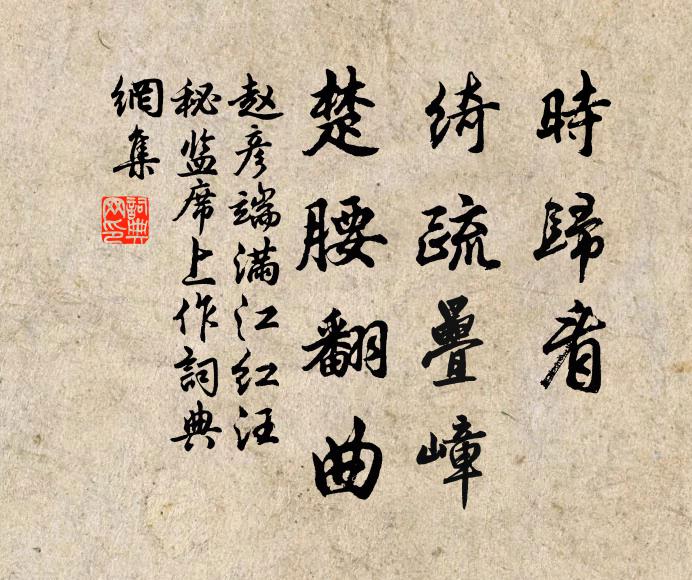 時歸看
綺疏疊嶂
楚腰翻曲
赵彥端满江红汪
秘监席上作詞典
網集
詞典
网印